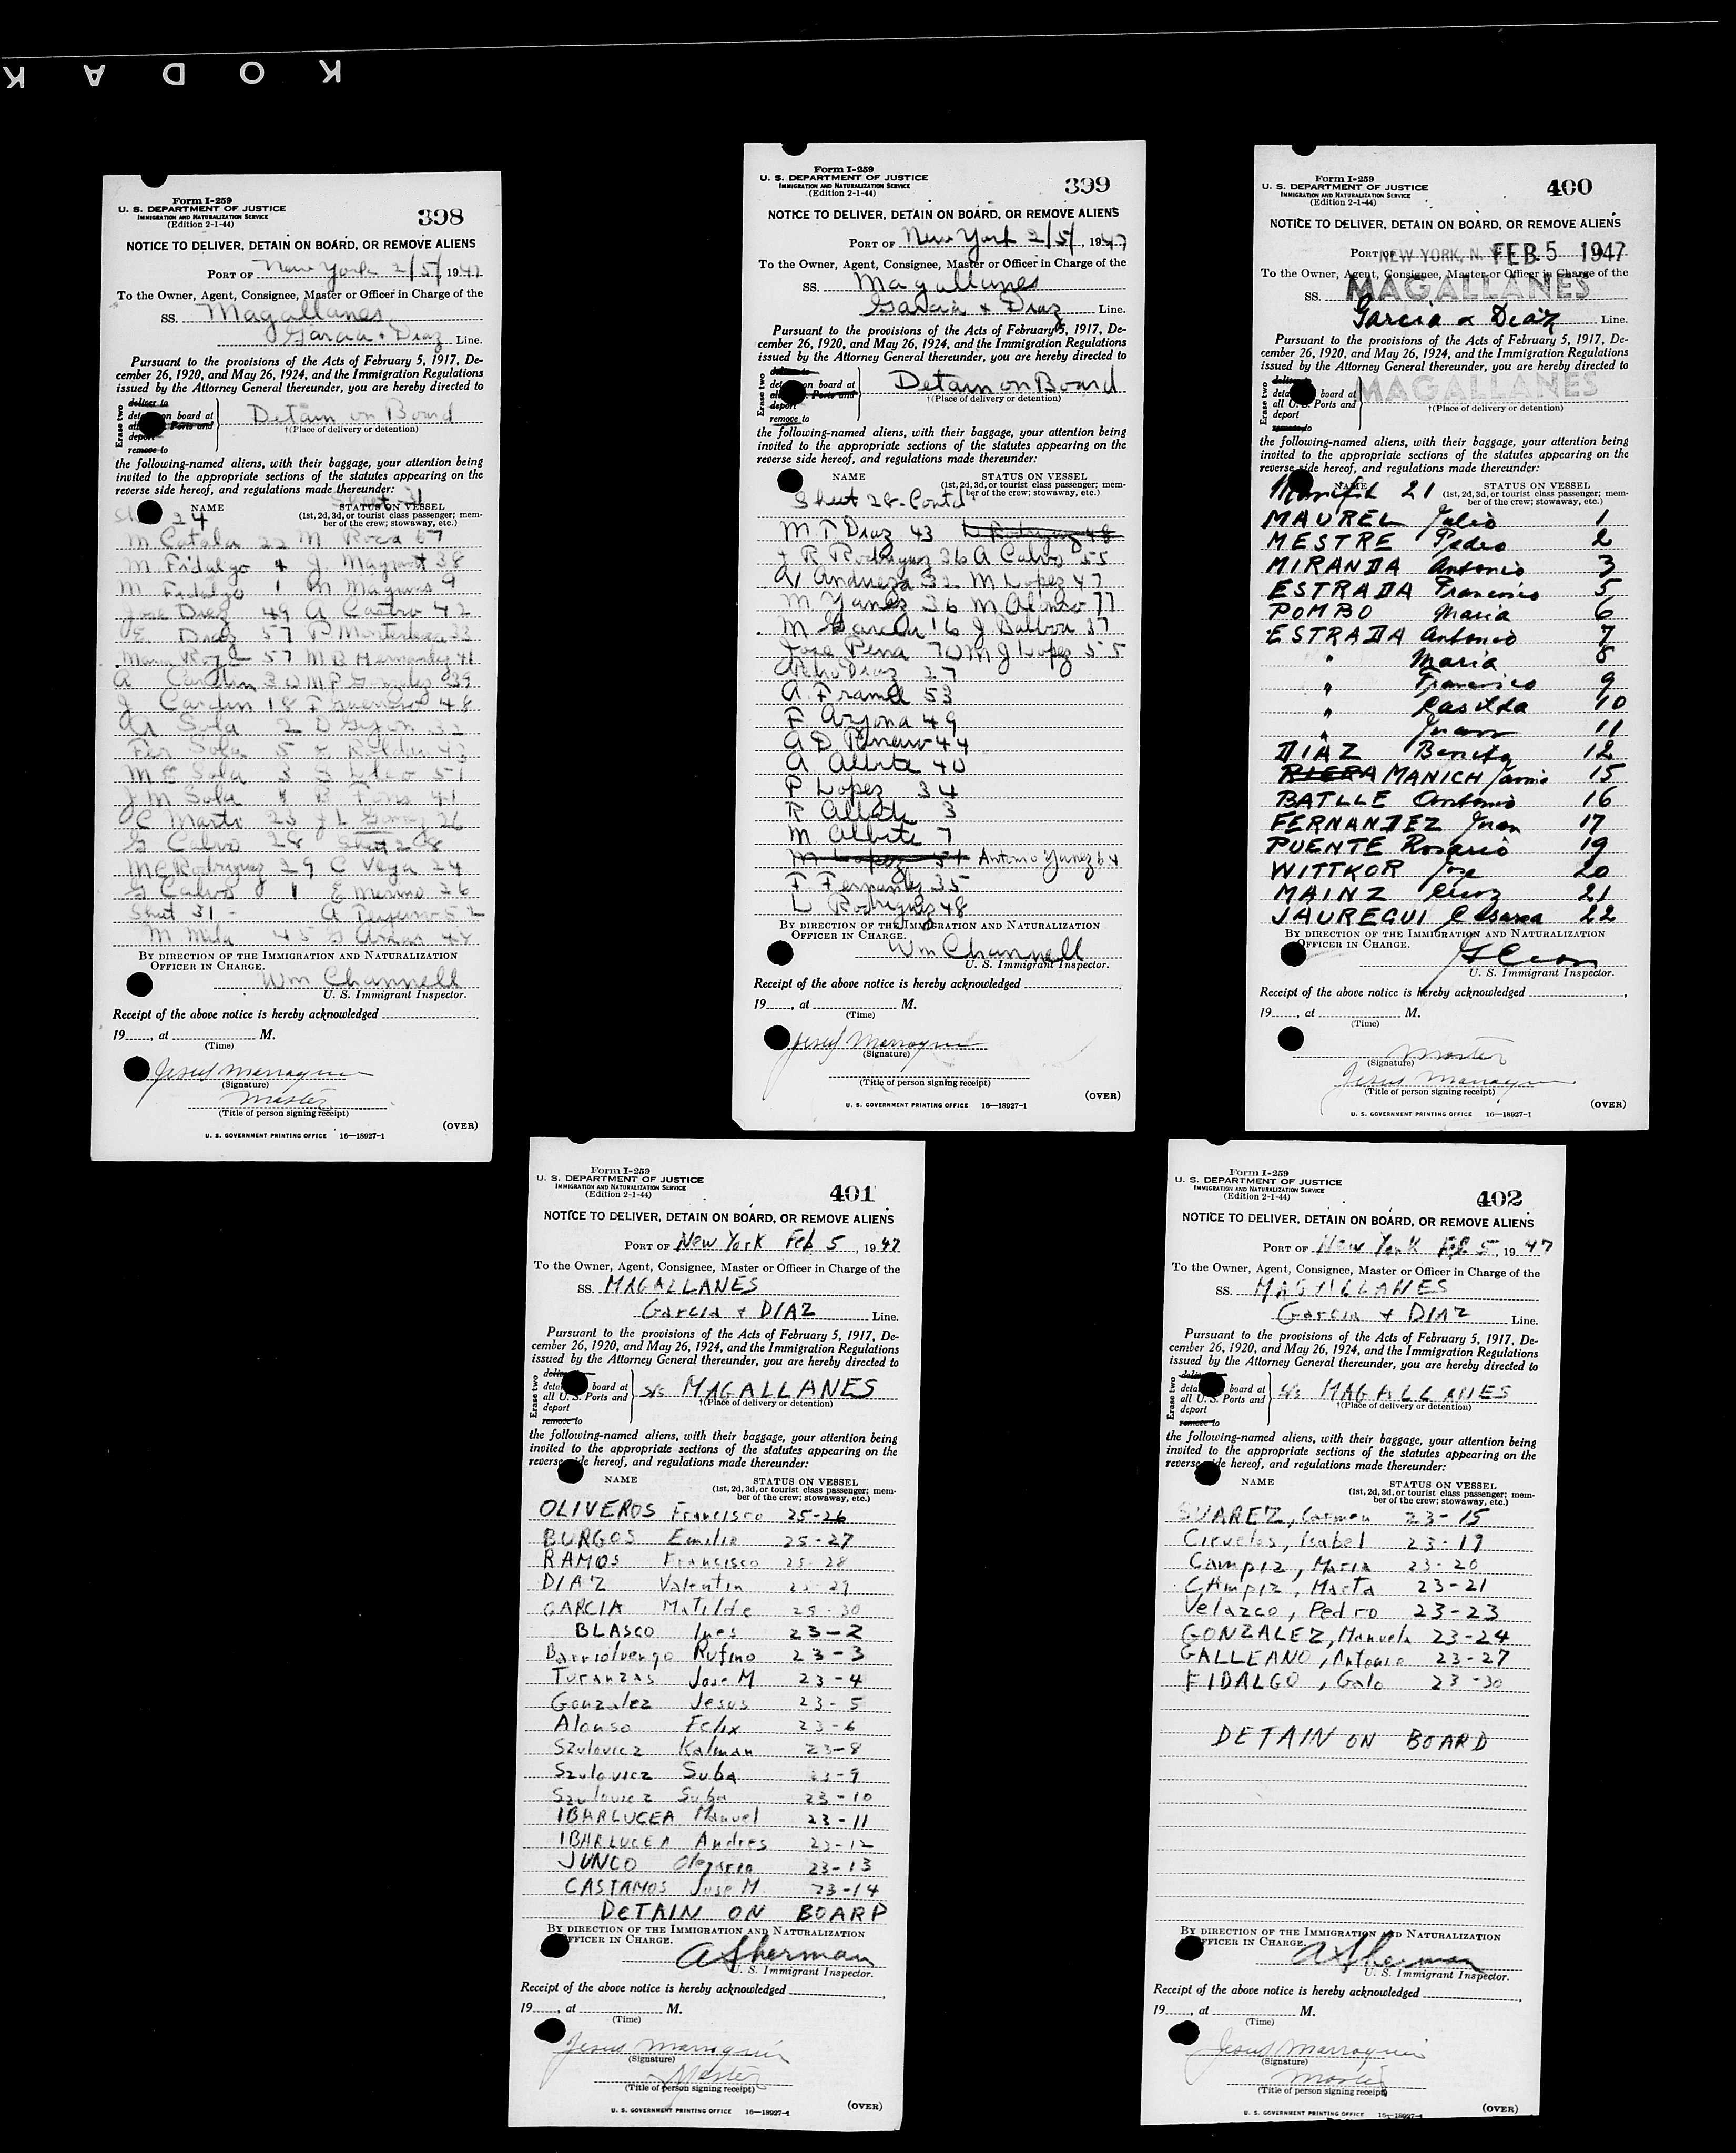 KODAK
Form I-259
U. S. DEPARTMENT OF JUSTICE
IMMIGRATION AND NATURALIZATION SERVICE
(Edition 2-1-44)
398
NOTICE TO DELIVER, DETAIN ON BOARD, OR REMOVE ALIENS
PORT OF New York 2/5/ 1947
To the Owner, Agent, Consignee, Master or Officer in Charge of the
SS. Magallanes
Garcia + Diaz Line.
Pursuant to the provisions of the Acts of February 5, 1917, De-
cember 26, 1920, and May 26, 1924, and the Immigration Regulations
issued by the Attorney General thereunder, you are hereby directed to
Erase two
deliver to
on board at
Ports and
remove to
Detain on Board
†(Place of delivery or detention)
the following-named aliens, with their baggage, your attention being
invited to the appropriate sections of the statutes appearing on the
reverse side hereof, and regulations made thereunder:
NAME STATUS ON VESSEL
(1st, 2d, 3d, or tourist class passenger; mem-
ber of the crew; stowaway, etc.)
24
M Catala 22 M Roca 67
M Fidalgo 4 J. 38
M Fidalgo 1 M
Jose Diaz 49 A Castro 42
E Diaz 57 P
57 M B Hernandez 41
M P Gonzales 39
J Cardin 18 F 48
Sola 2 D Gijon 32
Sola 5
M E Sola 3
J M Sola B Pons 41
C Marti 23 J L Gomez 26
G Calvo 28 Sheet 28
M C Rodriguez 29 C Vega 24
G Calvo 1 E Merino 26
Sheet 31 - A 52
M Mila 45 G
BY DIRECTION OF THE IMMIGRATION AND NATURALIZATION
OFFICER IN CHARGE.
Wm Channell
U. S. Immigrant Inspector.
Receipt of the above notice is hereby acknowledged
19, at M.
(Time)
Jesus Marroquin
(Signature)
Master
(Title of person signing receipt)
(OVER)
U. S. GOVERNMENT PRINTING OFFICE 16—18927-1
Form I-259
U. S. DEPARTMENT OF JUSTICE
IMMIGRATION AND NATURALIZATION SERVICE
(Edition 2-1-44)
399
NOTICE TO DELIVER, DETAIN ON BOARD, OR REMOVE ALIENS
PORT OF New York 2/5/, 1947
To the Owner, Agent, Consignee, Master or Officer in Charge of the
SS. Magallanes
Garcia + Diaz Line.
Pursuant to the provisions of the Acts of February 5, 1917, De-
cember 26, 1920, and May 26, 1924, and the Immigration Regulations
issued by the Attorney General thereunder, you are hereby directed to
Erase two
on board at
Ports and
deport
remove to
Detain on Board
†(Place of delivery or detention)
the following-named aliens, with their baggage, your attention being
invited to the appropriate sections of the statutes appearing on the
reverse side hereof, and regulations made thereunder:
NAME STATUS ON VESSEL
(1st, 2d, 3d, or tourist class passenger; mem-
ber of the crew; stowaway, etc.)
Sheet 28-Contd
M P Diaz 43 L Rodriguez 48
J R Rodriguez 36 A Calvo 55
Andueza 32 M Lopez 47
M Yanez 36 M Alonso 77
M Garcia 16 J Balboa 37
Jose Pena 70 M J Lopez 55
Diaz 27
A. 53
F Arjona 49
A D 44
A Albite 40
P Lopez 34
R Albite 3
M Albite 7
M Lopez 51 Antonio Yanez 64
F. Fernandez 35
L Rodriguez 48
BY DIRECTION OF THE IMMIGRATION AND NATURALIZATION
OFFICER IN CHARGE.
Wm Channell
U. S. Immigrant Inspector.
Receipt of the above notice is hereby acknowledged
19, at M.
(Time)
Jesus Marroquin
(Signature)
(Title of person signing receipt)
(OVER)
U. S. GOVERNMENT PRINTING OFFICE 16—18927-1
Form I-259
U. S. DEPARTMENT OF JUSTICE
IMMIGRATION AND NATURALIZATION SERVICE
(Edition 2-1-44)
400
NOTICE TO DELIVER, DETAIN ON BOARD, OR REMOVE ALIENS
PORT OF NEW YORK, N. Y. FEB 5 1947
To the Owner, Agent, Consignee, Master or Officer in Charge of the
SS. MAGALLANES
Garcia & Diaz Line.
Pursuant to the provisions of the Acts of February 5, 1917, De-
cember 26, 1920, and May 26, 1924, and the Immigration Regulations
issued by the Attorney General thereunder, you are hereby directed to
Erase two
board at
all U. S. Ports and
deport
remove to
MAGALLANES
†(Place of delivery or detention)
the following-named aliens, with their baggage, your attention being
invited to the appropriate sections of the statutes appearing on the
reverse side hereof, and regulations made thereunder:
Manifest 21
NAME STATUS ON VESSEL
(1st, 2d, 3d, or tourist class passenger; mem-
ber of the crew; stowaway, etc.)
MAUREL Julio 1
MESTRE Pedro 2
MIRANDA Antonio 3
ESTRADA Francisco 5
POMBO Maria 6
ESTRADA Antonio 7
" Maria 8
" Francisco 9
" Casilda 10
" Juan 11
DIAZ Benita 12
RIERA MANICH 15
BATLLE Antonio 16
FERNANDEZ Juan 17
PUENTE Rosario 19
WITTKOR Jose 20
MAINZ Cruz 21
JAUREGUI Cesarea 22
BY DIRECTION OF THE IMMIGRATION AND NATURALIZATION
OFFICER IN CHARGE.
U. S. Immigrant Inspector.
Receipt of the above notice is hereby acknowledged
19, at M.
(Time)
Master
(Signature)
Jesus Marroquin
(Title of person signing receipt)
(OVER)
U. S. GOVERNMENT PRINTING OFFICE 16—18927-1
Form I-259
U. S. DEPARTMENT OF JUSTICE
IMMIGRATION AND NATURALIZATION SERVICE
(Edition 2-1-44)
401
NOTICE TO DELIVER, DETAIN ON BOARD, OR REMOVE ALIENS
PORT OF New York Feb 5, 1947
To the Owner, Agent, Consignee, Master or Officer in Charge of the
SS. MAGALLANES
Garcia + DIAZ Line.
Pursuant to the provisions of the Acts of February 5, 1917, De-
cember 26, 1920, and May 26, 1924, and the Immigration Regulations
issued by the Attorney General thereunder, you are hereby directed to
Erase two
board at
all U. S. Ports and
deport
remove to
S/S MAGALLANES
†(Place of delivery or detention)
the following-named aliens, with their baggage, your attention being
invited to the appropriate sections of the statutes appearing on the
reverse side hereof, and regulations made thereunder:
NAME STATUS ON VESSEL
(1st, 2d, 3d, or tourist class passenger; mem-
ber of the crew; stowaway, etc.)
OLIVEROS Francisco 25-26
BURGOS Emilio 25-27
RAMOS Francisco 25-28
DIAZ Valentin 25-29
GARCIA Matilde 25-30
BLASCO Ines 23-2
Barrioluengo Rufino 23-3
Turanzas Jose M 23-4
Gonzalez Jesus 23-5
Alonso Felix 23-6
Szulovicz Kalman 23-8
Szulovicz Suba 23-9
Szulovicz Suba 23-10
IBARLUCEA Manuel 23-11
IBARLUCEA Andres 23-12
JUNCO Olegario 23-13
CASTAMOS Jose M. 23-14
DETAIN ON BOARD
BY DIRECTION OF THE IMMIGRATION AND NATURALIZATION
OFFICER IN CHARGE.
A Sherman
U. S. Immigrant Inspector.
Receipt of the above notice is hereby acknowledged
19, at M.
(Time)
Jesus Marroquin
(Signature)
Master
(Title of person signing receipt)
(OVER)
U. S. GOVERNMENT PRINTING OFFICE 16—18927-1
Form I-259
U. S. DEPARTMENT OF JUSTICE
IMMIGRATION AND NATURALIZATION SERVICE
(Edition 2-1-44)
402
NOTICE TO DELIVER, DETAIN ON BOARD, OR REMOVE ALIENS
PORT OF New York Feb 5, 1947
To the Owner, Agent, Consignee, Master or Officer in Charge of the
SS. MAGALLANES
Garcia + DIAZ Line.
Pursuant to the provisions of the Acts of February 5, 1917, De-
cember 26, 1920, and May 26, 1924, and the Immigration Regulations
issued by the Attorney General thereunder, you are hereby directed to
Erase two
board at
all U. S. Ports and
deport
remove to
S/S MAGALLANES
†(Place of delivery or detention)
the following-named aliens, with their baggage, your attention being
invited to the appropriate sections of the statutes appearing on the
reverse side hereof, and regulations made thereunder:
NAME STATUS ON VESSEL
(1st, 2d, 3d, or tourist class passenger; mem-
ber of the crew; stowaway, etc.)
SUAREZ, Carmen 23-15
Ciruelos, Isabel 23-19
Campiz, Maria 23-20
CAmpiz, Marta 23-21
Velazco, Pedro 23-23
GONZALEZ, Manuela 23-24
GALLEANO, Antonio 23-27
FIDALGO, Galo 23-30
DETAIN ON BOARD
BY DIRECTION OF THE IMMIGRATION AND NATURALIZATION
OFFICER IN CHARGE.
A Sherman
U. S. Immigrant Inspector.
Receipt of the above notice is hereby acknowledged
19, at M.
(Time)
Jesus Marroquin
(Signature)
Master
(Title of person signing receipt)
(OVER)
U. S. GOVERNMENT PRINTING OFFICE 16—18927-1